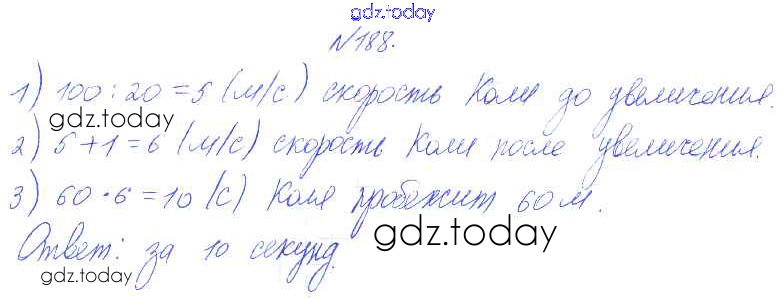 gdz.today
№188.
1) 100:20=5 (м/с) скорость Коли до увеличения.
gdz.today
2) 5+1=6 (м/с) скорость Коли после увеличения.
3) 60·6=10 (с) Коля пробежит 60 м.
Ответ: за 10 секунд.
gdz.today
gdz.today